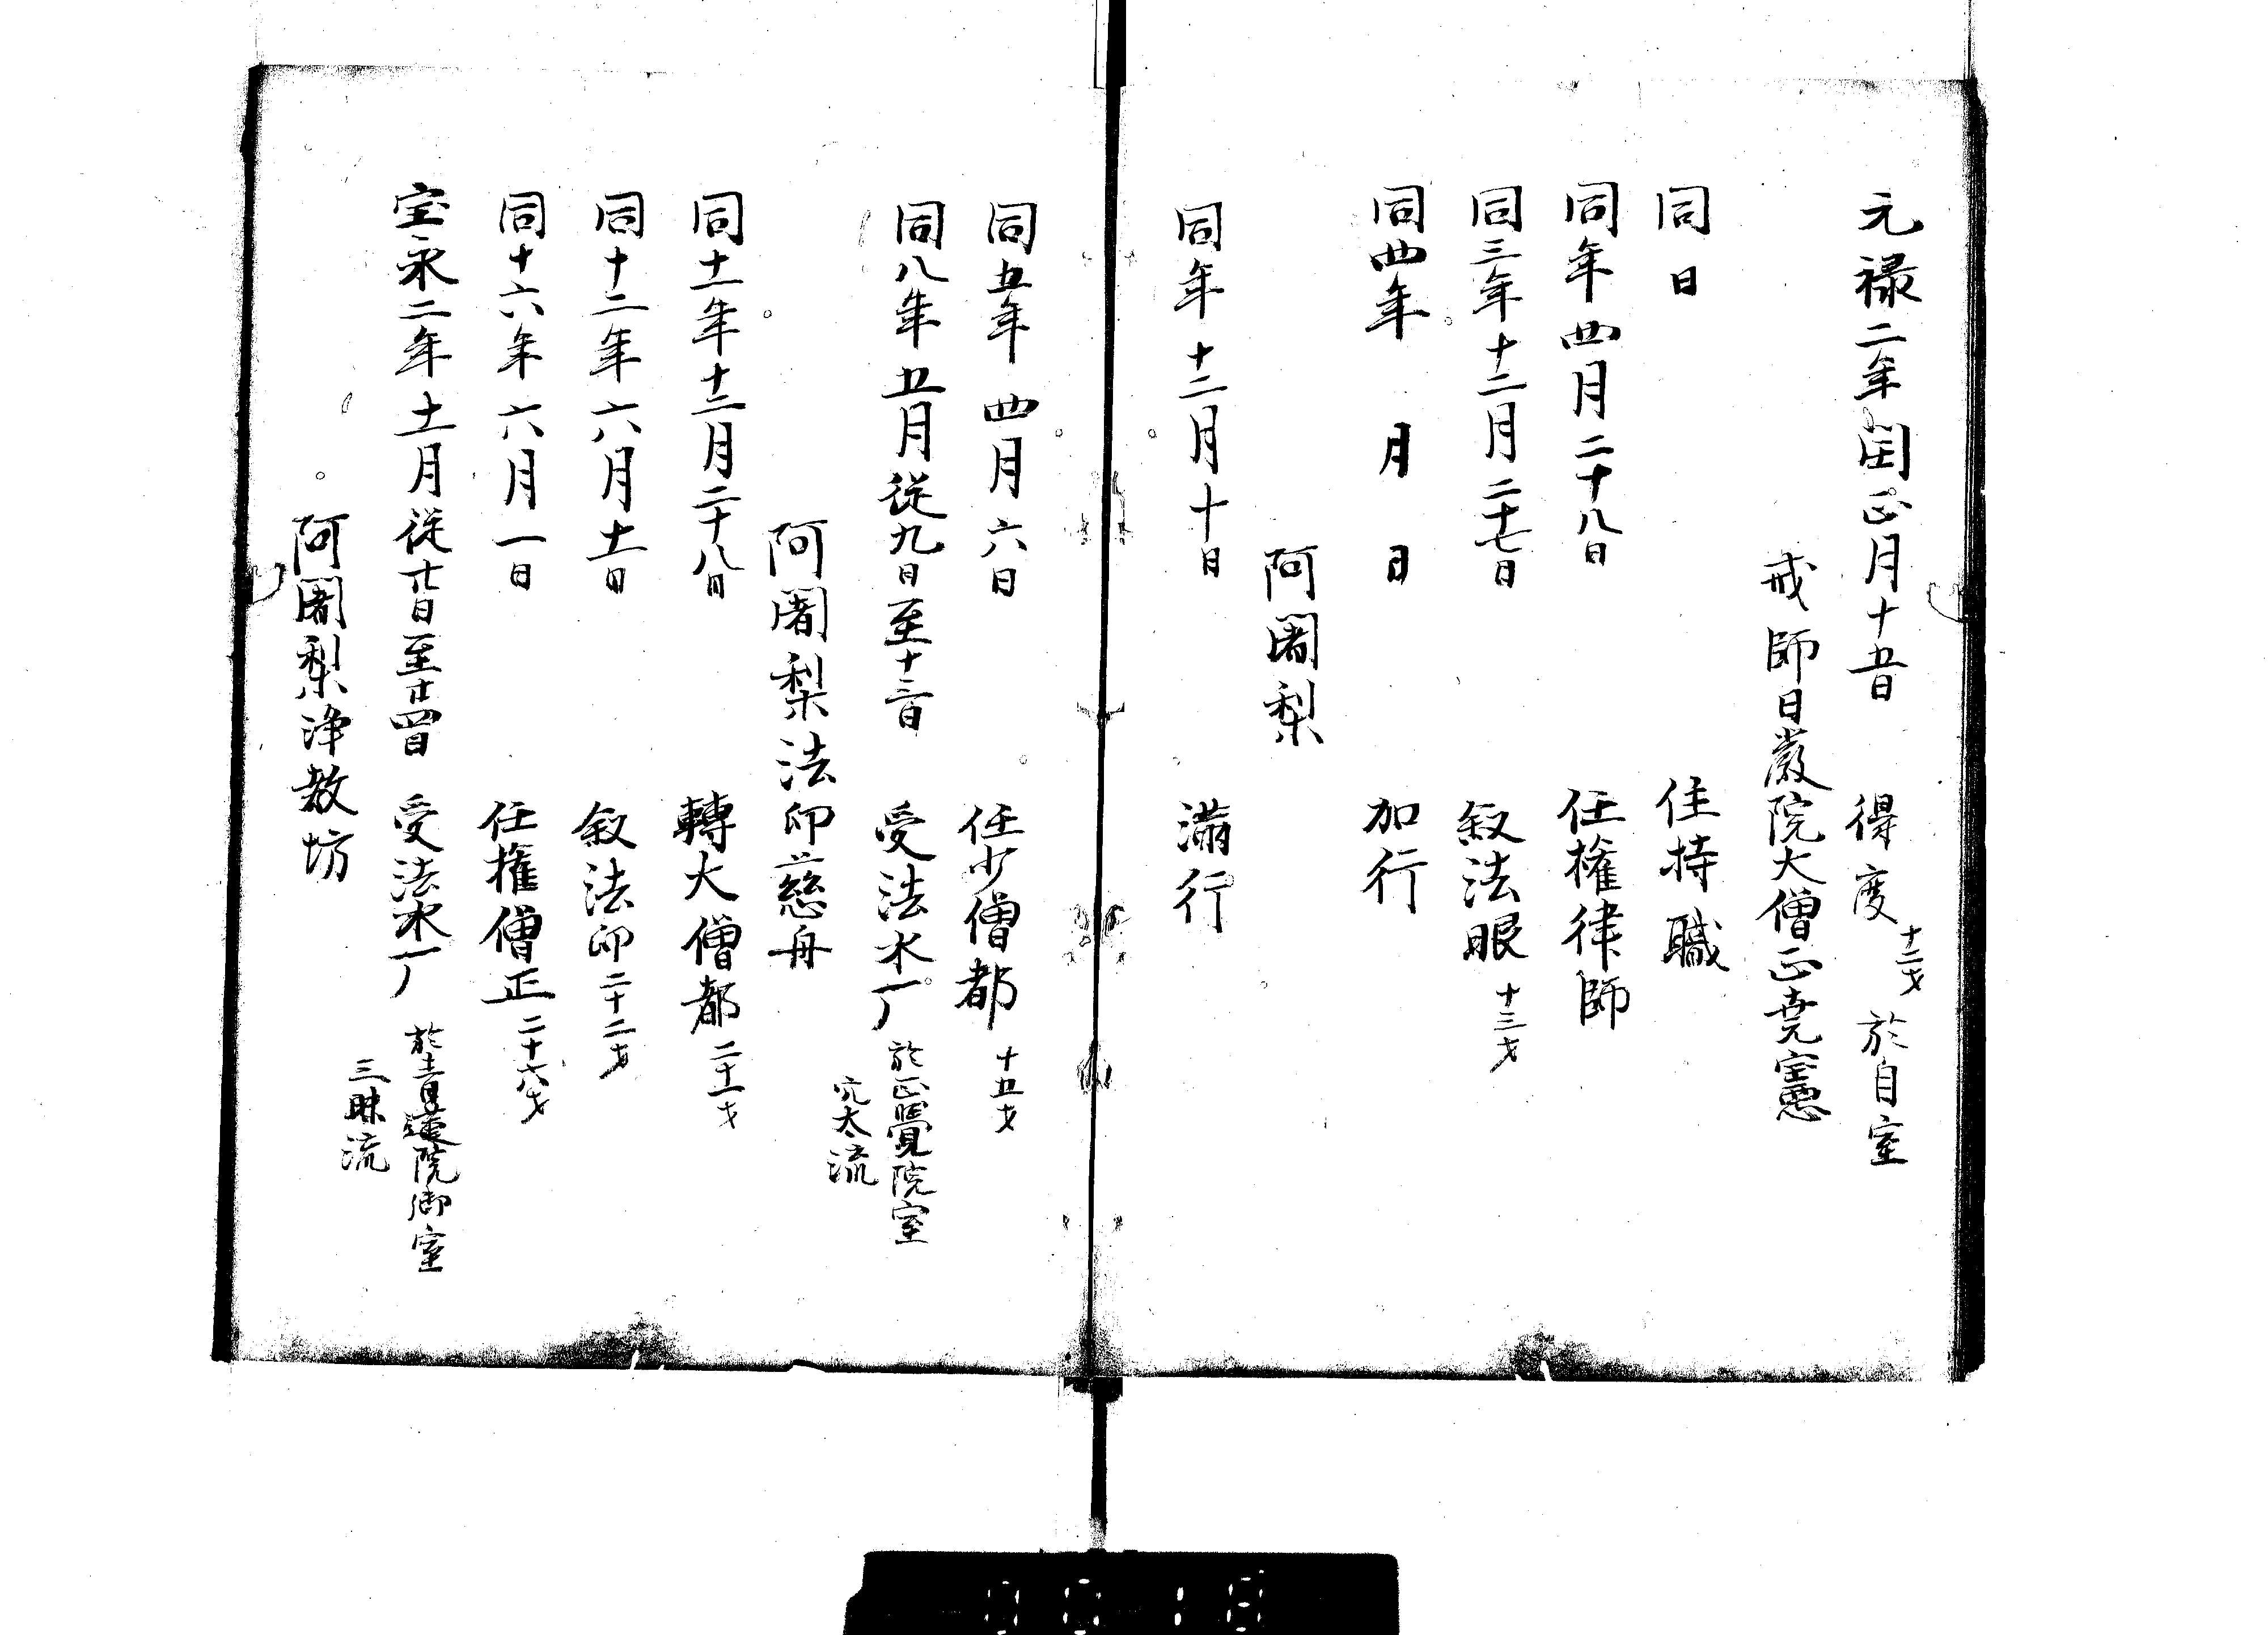 元禄二年閏正月十五日　得度 十二才 於自室
戒師日嚴院大僧正堯憲
同日　住持職
同年四月二十八日　任權律師
同三年十二月二十七日　叙法眼 十三才
同四年　月　日　加行
阿闍梨
同年十二月十日　滿行
同五年四月六日　任少僧都 十五才
同八年五月從九日至十三日　受法水厂 於正覺院室
穴太流
阿闍梨法印慈舟
同十一年十二月二十八日　轉大僧都 二十一才
同十二年六月十一日　叙法印 二十二才
同十六年六月一日　任權僧正 二十六才
宝永二年十一月從廿日至廿四日　受法水厂 於青蓮院御室
三昧流
阿闍梨淨教坊
0018